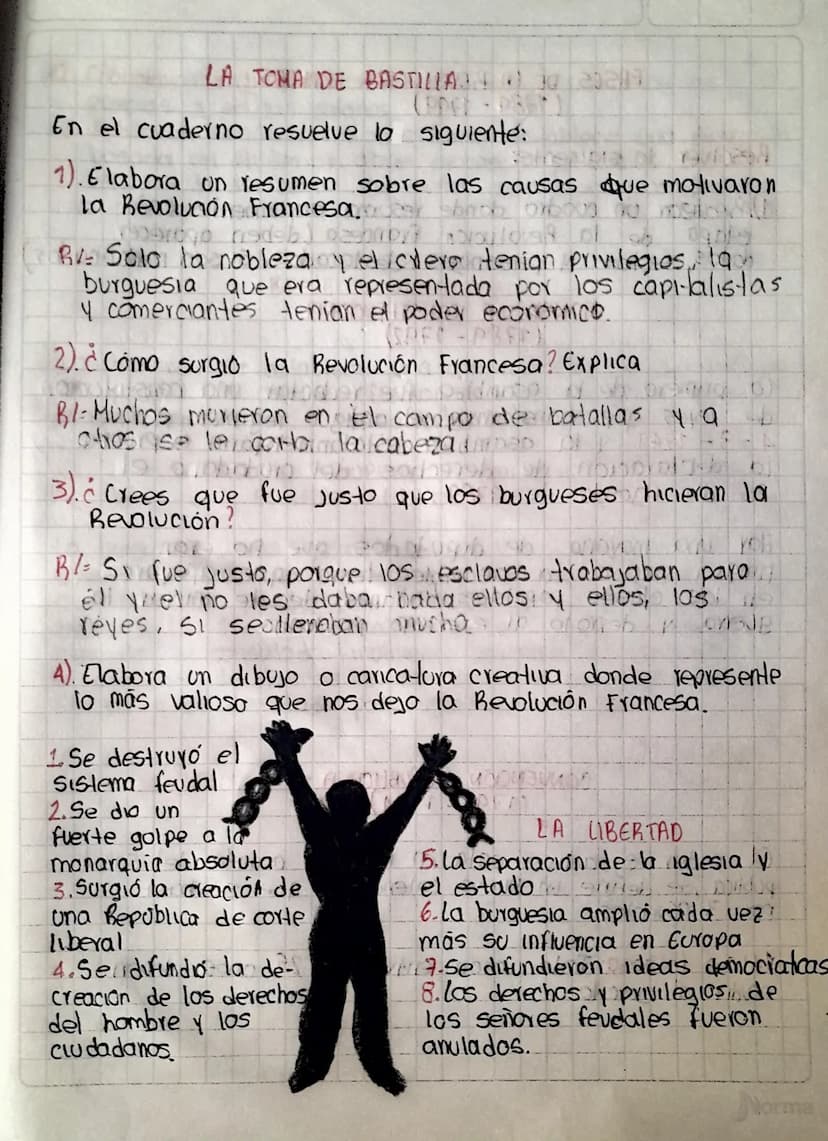 LA TOMA DE BASTILLA
En el cuaderno resuelve lo siguiente:
1). Elabora un resumen sobre las causas que motivaron
la Revolución Francesa.
R/= Solo la nobleza y el clero tenian privilegios, la
burguesia que era representada por los capitalistas
y comerciantes tenian el poder economico.
2). ¿Cómo surgió la Revolución Francesa? Explica
R/= Muchos murieron en el campo de batallas y a
otros se le corto la cabeza.
3). ¿Crees que fue justo que los burgueses hicieran la
Revolución?
R/= Si fue justo, porque los esclavos trabajaban para
él y el no les daba nada ellos y ellos, los
reyes, si se llevaban mucha
4). Elabora un dibujo o caricatura creativa donde represente
lo más valioso que nos dejo la Revolución Francesa.
1. Se destruyó el
sistema feudal
2. Se dio un
fuerte golpe a la
monarquia absoluta
3. Surgió la creación de
una República de corte
liberal
4. Se difundió la de-
creación de los derechos
del hombre y los
ciudadanos.
LA LIBERTAD
5. la separación de la iglesia y
el estado
6. La burguesia amplió cada vez
más su influencia en Europa
7. Se difundieron ideas democraticas
8. los derechos y privilegios de
los señores feudales fueron
anulados.
Norma